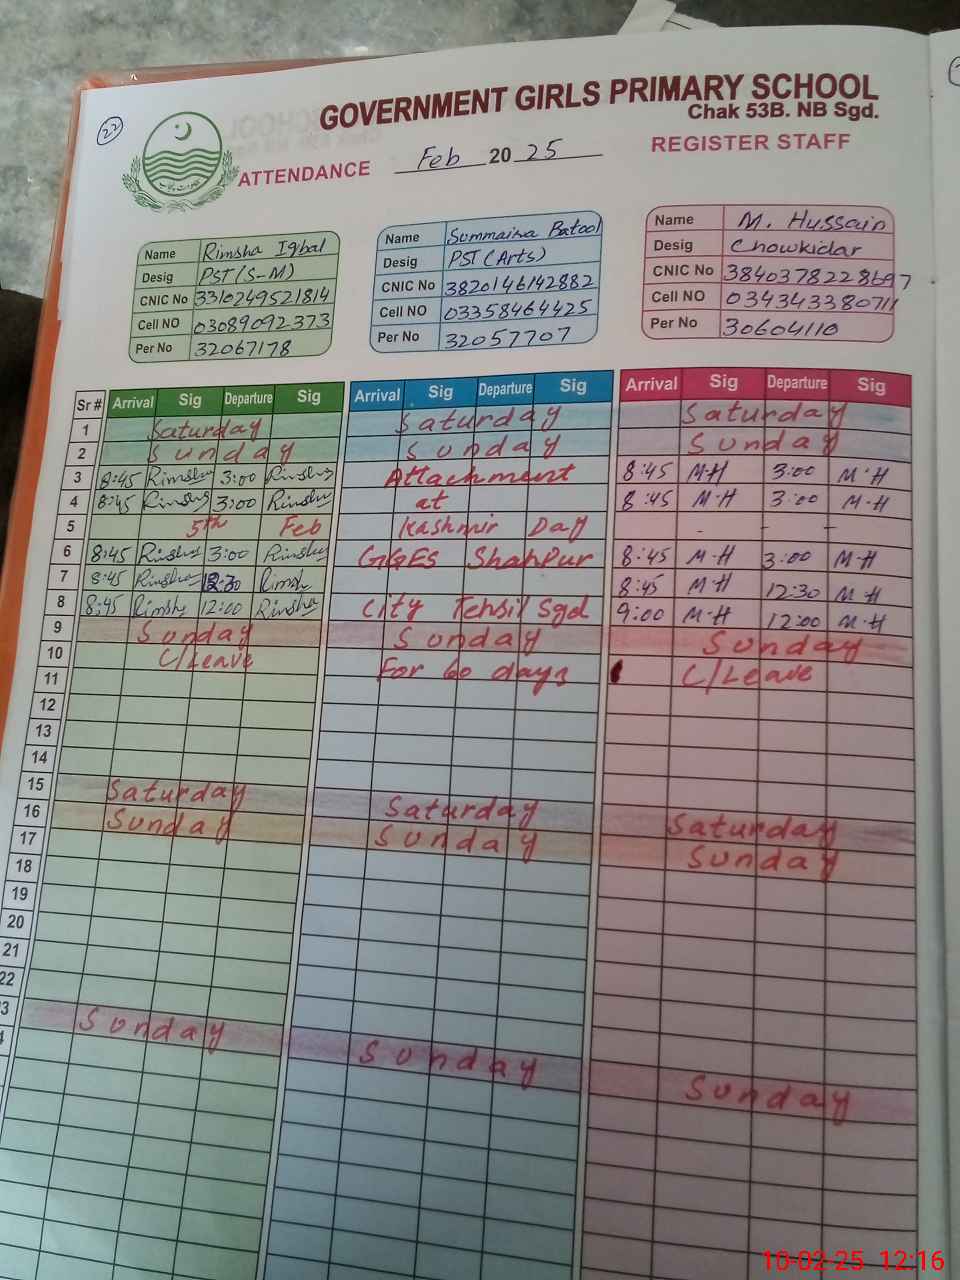 22
GOVERNMENT GIRLS PRIMARY SCHOOL
Chak 53B. NB Sgd.
ATTENDANCE Feb 20 25 REGISTER STAFF
Name Rimsha Iqbal
Desig PST (S-M)
CNIC No 3310249521814
Cell NO 03089092373
Per No 32067178
Name Summaira Batool
Desig PST (Arts)
CNIC No 3820146142882
Cell NO 03358464425
Per No 32057707
Name M. Hussain
Desig Chowkidar
CNIC No 3840378228697
Cell NO 03434338071
Per No 30604110
Sr # Arrival Sig Departure Sig Arrival Sig Departure Sig Arrival Sig Departure Sig
1 Saturday Saturday Saturday
2 Sunday Sunday Sunday
3 8:45 Rimsha 3:00 Rimsha Attachment 8:45 M-H 3:00 M-H
4 8:45 Rimsha 3:00 Rimsha at 8:45 M-H 3:00 M-H
5 5th Feb Kashmir Day - - -
6 8:45 Rimsha 3:00 Rimsha GGES Shahpur 8:45 M-H 3:00 M-H
7 8:45 Rimsha 12:30 Rimsha 8:45 M-H 12:30 M-H
8 8:45 Rimsha 12:00 Rimsha City Tehsil Sgd 9:00 M-H 12:00 M-H
9 Sunday Sunday Sunday
10 C/Leave For 60 days C/Leave
11
12
13
14
15 Saturday Saturday Saturday
16 Sunday Sunday Sunday
17
18
19
20
21
22
3 Sunday Sunday Sunday
10-02-25 12:16